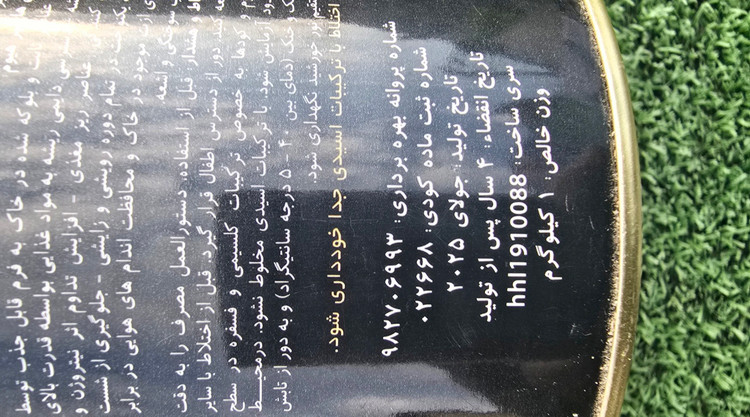 و بلوکه شده در خاک به فرم قابل جذب توسط
ریسه به مواد غذایی بواسطه قدرت بالای
عناصر ریز مغذی - افزایش تداوم اثر نیتروژن و
در تمام دوره رویشی و زایشی - جلوگیری از شست
موجود در خاک و محافظت اندام های هوایی در برابر
سوختگی و اشعه
هشدار: قبل از استفاده، دستورالعمل مصرف را به دقت
کنید. دور از دسترس اطفال قرار گیرد. قبل از اختلاط با سایر
و کودها به خصوص ترکیبات کلسیمی و فسفره در سطح
آزمایش شود. با ترکیبات اسیدی مخلوط نشود. درمحیط
و خنک (دمای بین ۴۰ - ۵ درجه سانتیگراد) و به دور از تابش
نور خورشید نگهداری شود.
اختلاط با ترکیبات اسیدی جدا خودداری شود.
شماره پروانه بهره برداری: ۹۸۲۷۰۶۹۹۳
شماره ثبت ماده کودی: ۰۲۲۶۶۸
تاریخ تولید: جولای ۲۰۲۵
تاریخ انقضاء: ۴ سال پس از تولید
سری ساخت: hhl1910088
وزن خالص: ۱ کیلوگرم